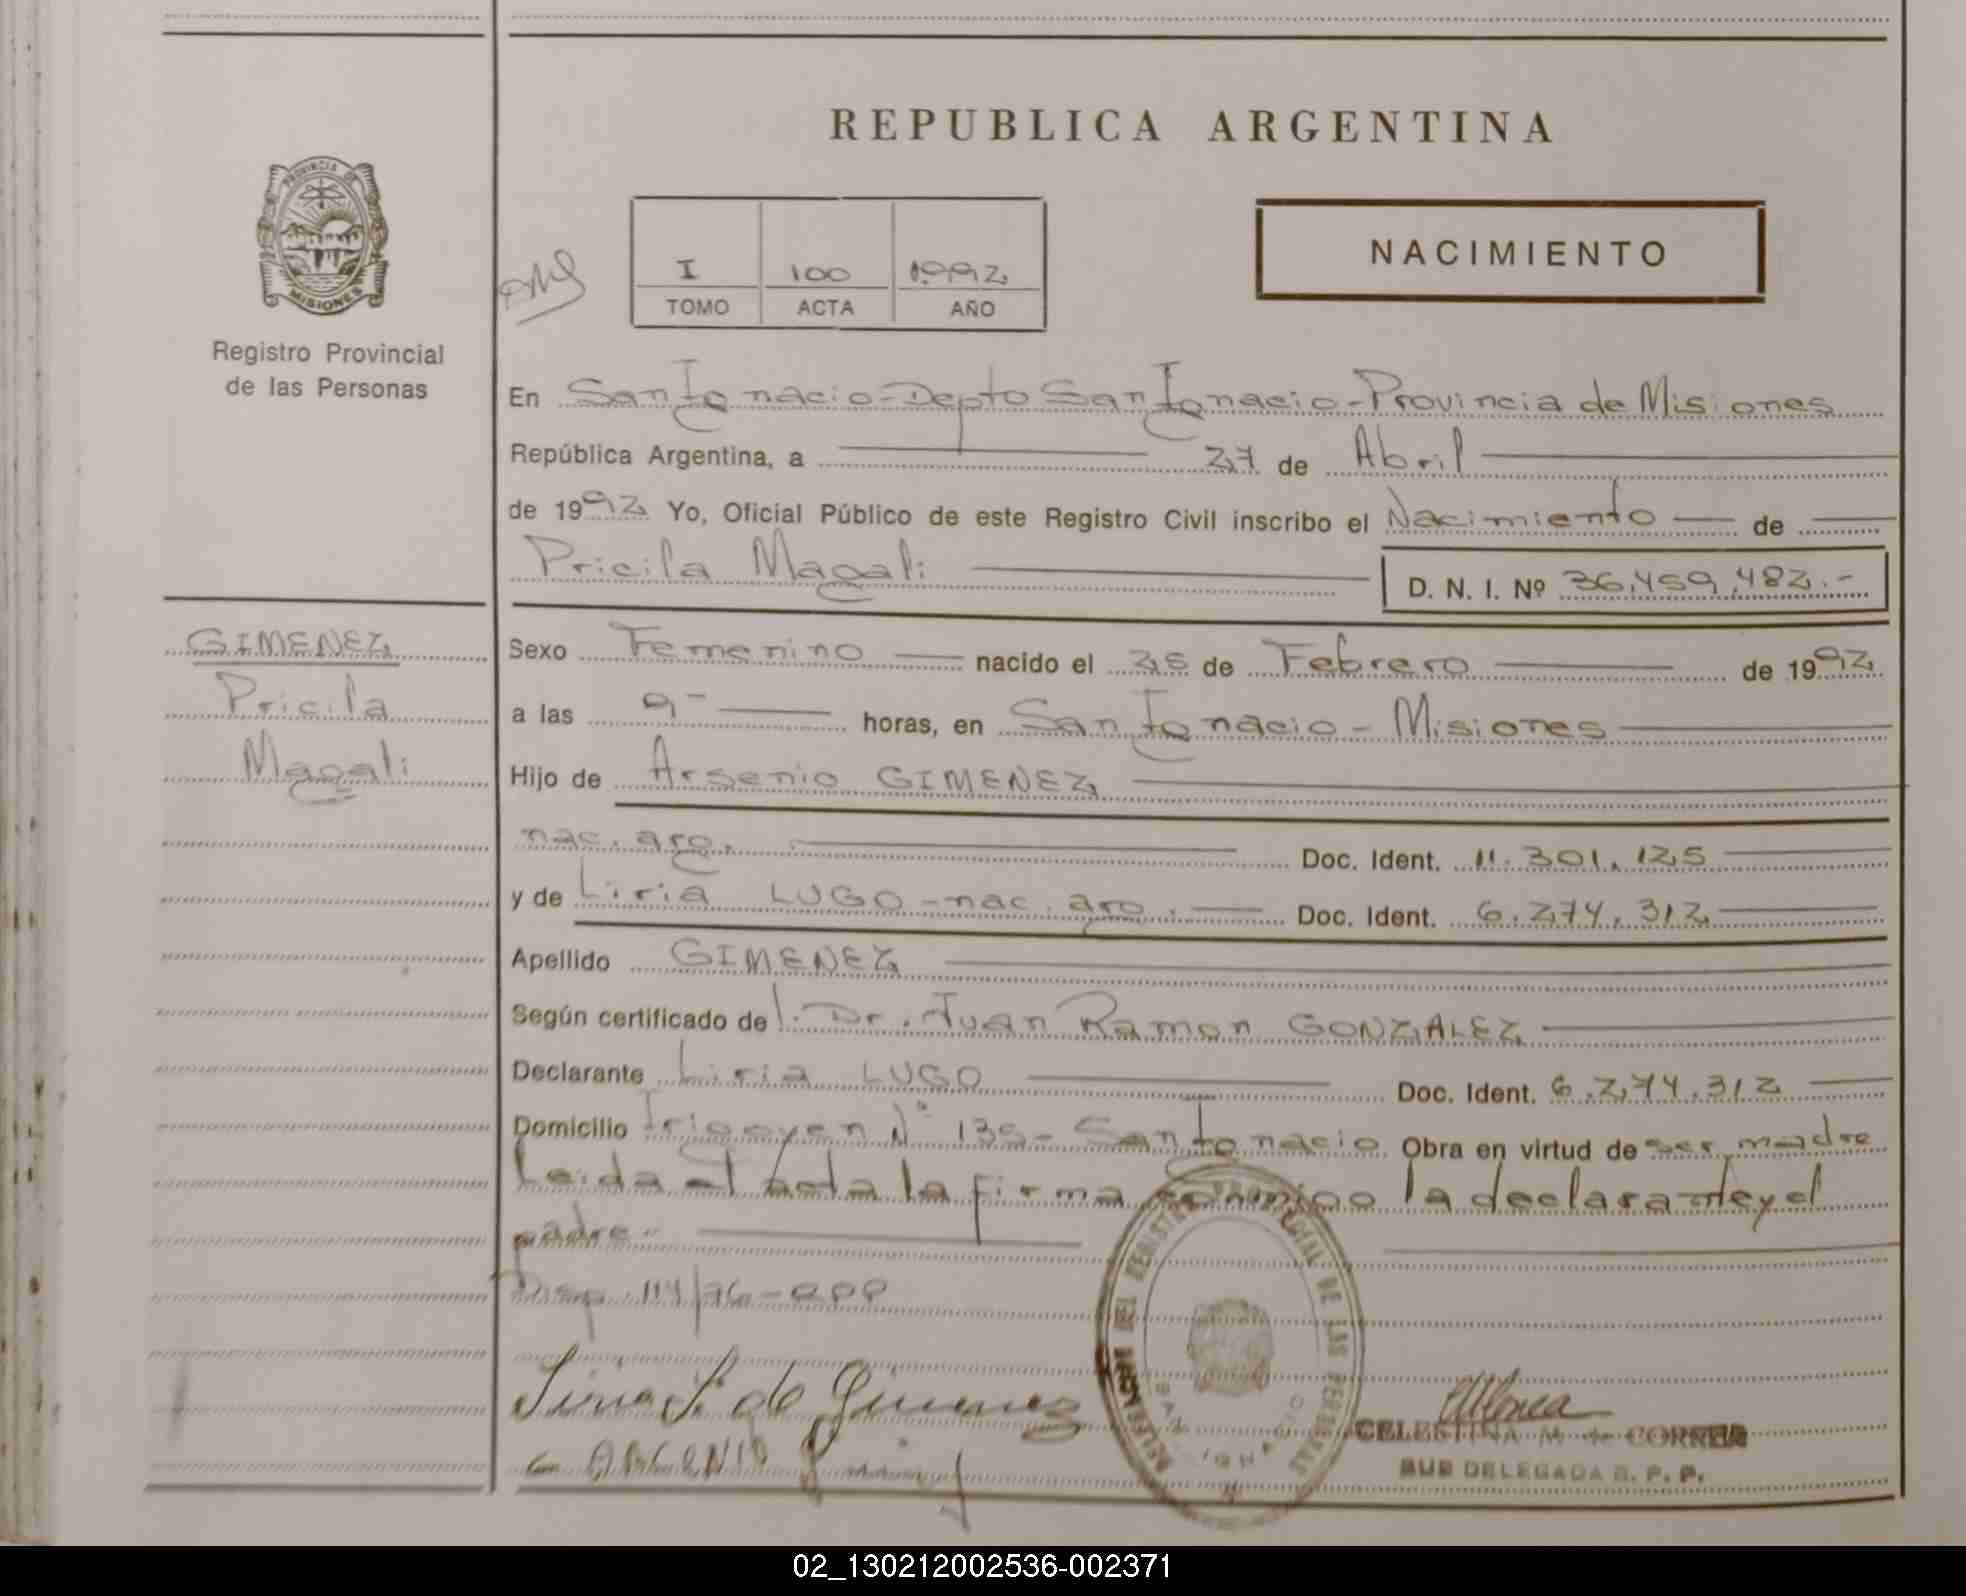 REPUBLICA ARGENTINA
PROVINCIA DE
MISIONES
Registro Provincial
de las Personas
NACIMIENTO
I 100 1992
TOMO ACTA AÑO
En San Ignacio - Depto San Ignacio - Provincia de Misiones
República Argentina, a 27 de Abril
de 1992 Yo, Oficial Público de este Registro Civil inscribo el Nacimiento de
Pricila Magali
D. N. I. Nº 36.459.482.-
GIMENEZ
Pricila
Magali
Sexo Femenino nacido el 25 de Febrero de 1992
a las 9- horas, en San Ignacio - Misiones
Hijo de Arsenio GIMENEZ
nac. arg. Doc. Ident. 11.301.125
y de Liria LUGO - nac. arg. Doc. Ident. 6.274.312
Apellido GIMENEZ
Según certificado de l. Dr. Juan Ramon GONZALEZ
Declarante Liria LUGO Doc. Ident. 6.274.312
Domicilio Irigoyen Nº 135 - San Ignacio Obra en virtud de ser madre
Leida el acta la firma conmigo la declarante y el
padre.-
Disp. 114/76 - RPP
Liria L. de Gimenez
ARCENIO
DEL REGISTRO PROVINCIAL DE LAS PERSONAS
SAN IGNACIO
CELESTINA M. de CORREA
SUB DELEGADA R. P. P.
02_130212002536-002371